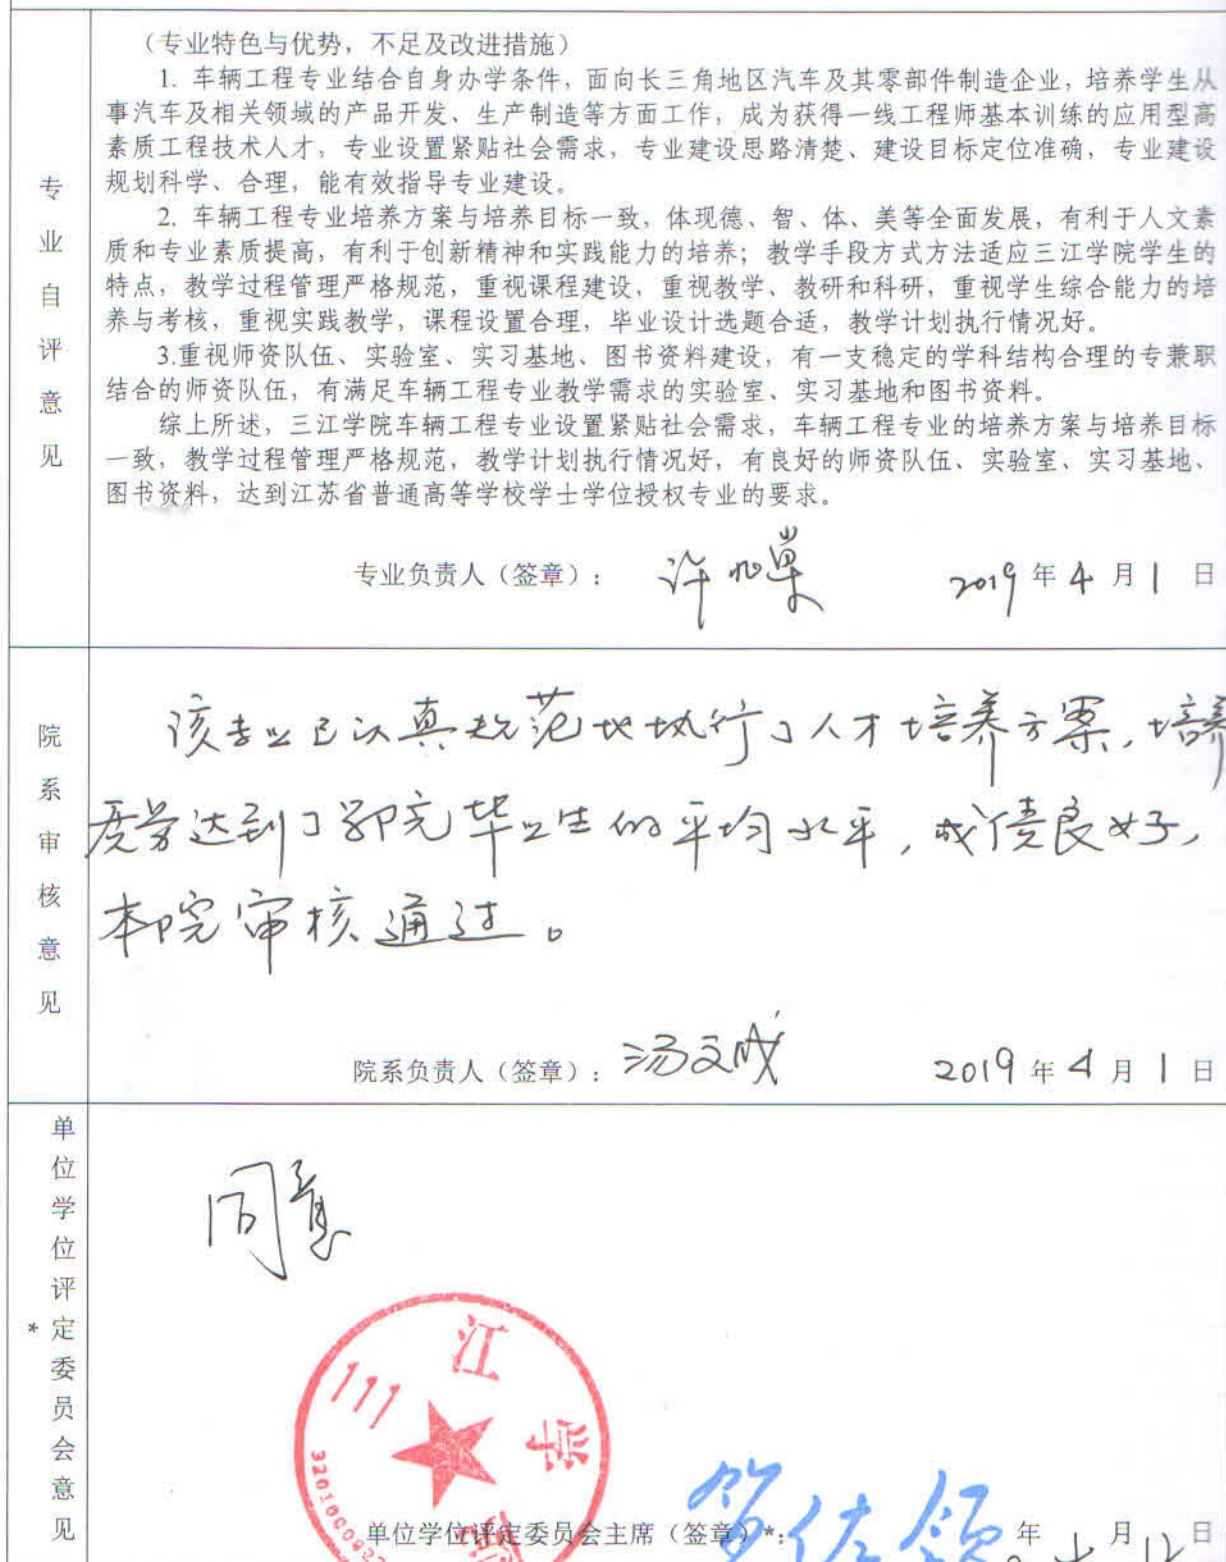 专业自评意见
（专业特色与优势，不足及改进措施）
1. 车辆工程专业结合自身办学条件，面向长三角地区汽车及其零部件制造企业，培养学生从
事汽车及相关领域的产品开发、生产制造等方面工作，成为获得一线工程师基本训练的应用型高
素质工程技术人才，专业设置紧贴社会需求，专业建设思路清楚、建设目标定位准确，专业建设
规划科学、合理，能有效指导专业建设。
2. 车辆工程专业培养方案与培养目标一致，体现德、智、体、美等全面发展，有利于人文素
质和专业素质提高，有利于创新精神和实践能力的培养；教学手段方式方法适应三江学院学生的
特点，教学过程管理严格规范，重视课程建设，重视教学、教研和科研，重视学生综合能力的培
养与考核，重视实践教学，课程设置合理，毕业设计选题合适，教学计划执行情况好。
3.重视师资队伍、实验室、实习基地、图书资料建设，有一支稳定的学科结构合理的专兼职
结合的师资队伍，有满足车辆工程专业教学需求的实验室、实习基地和图书资料。
综上所述，三江学院车辆工程专业设置紧贴社会需求，车辆工程专业的培养方案与培养目标
一致，教学过程管理严格规范，教学计划执行情况好，有良好的师资队伍、实验室、实习基地、
图书资料，达到江苏省普通高等学校学士学位授权专业的要求。
专业负责人（签章）： 许 2019年4月1日
院系审核意见
该专业已认真规范地执行了人才培养方案，培养
质量达到了我院毕业生的平均水平，成绩良好，
本院审核通过。
院系负责人（签章）：汤文成 2019年4月1日
单位学位评定委员会意见*
同意
三江学
单位学位评定委员会主席（签章）*： 年 月 日